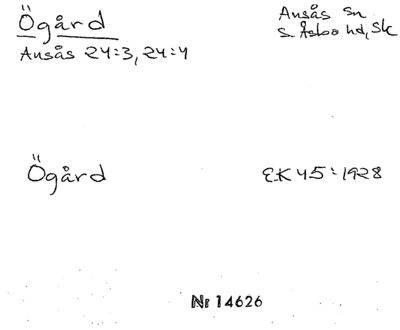 Ögård
Ansås 24:3, 24:4
Ansås sn
S. Åsbo hd, Sk
Ögård
EK 45:1928
Nr 14626